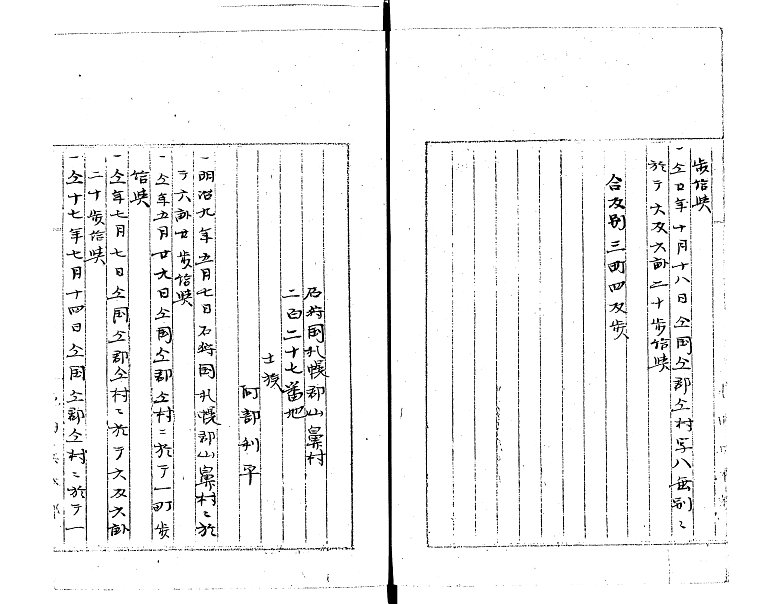 歩給与
一仝廿年十月十八日仝国仝郡仝村字八垂別ニ
於テ六反六畝二十歩給与
合反別三町四反歩
石狩国札幌郡山鼻村
二百二十七番地
士族
阿部利平
一明治九年五月七日石狩国札幌郡山鼻村ニ於
テ六畝廿歩給与
一仝年五月廿九日仝国仝郡仝村ニ於テ一町歩
給与
一仝年七月七日仝国仝郡仝村ニ於テ六反六畝
二十歩給与
一仝十七年七月十四日仝国仝郡仝村ニ於テ一